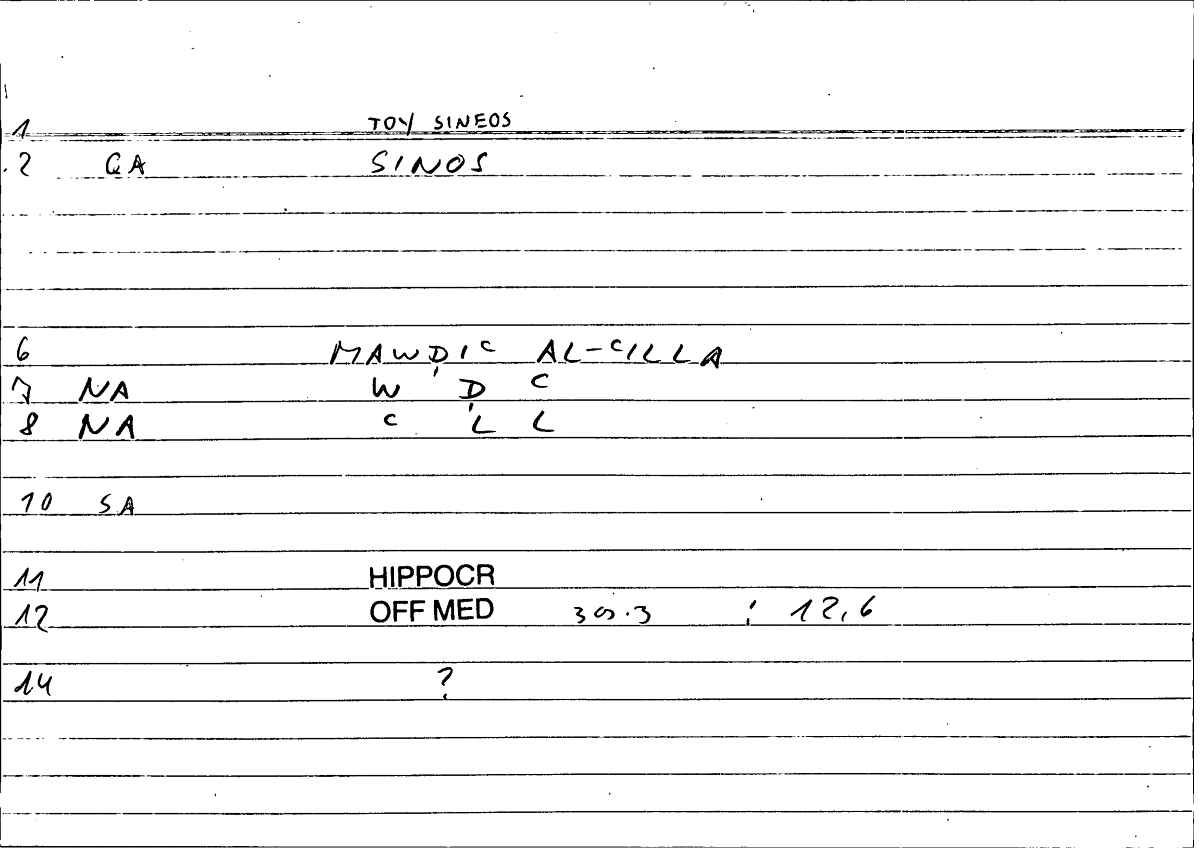 1 TOY SINEOS
2 GA SINOS
6 MAWḌIC AL-CILLA
7 NA W Ḍ C
8 NA C L L
10 SA
11 HIPPOCR
12 OFF MED 30.3 : 12,6
14 ?